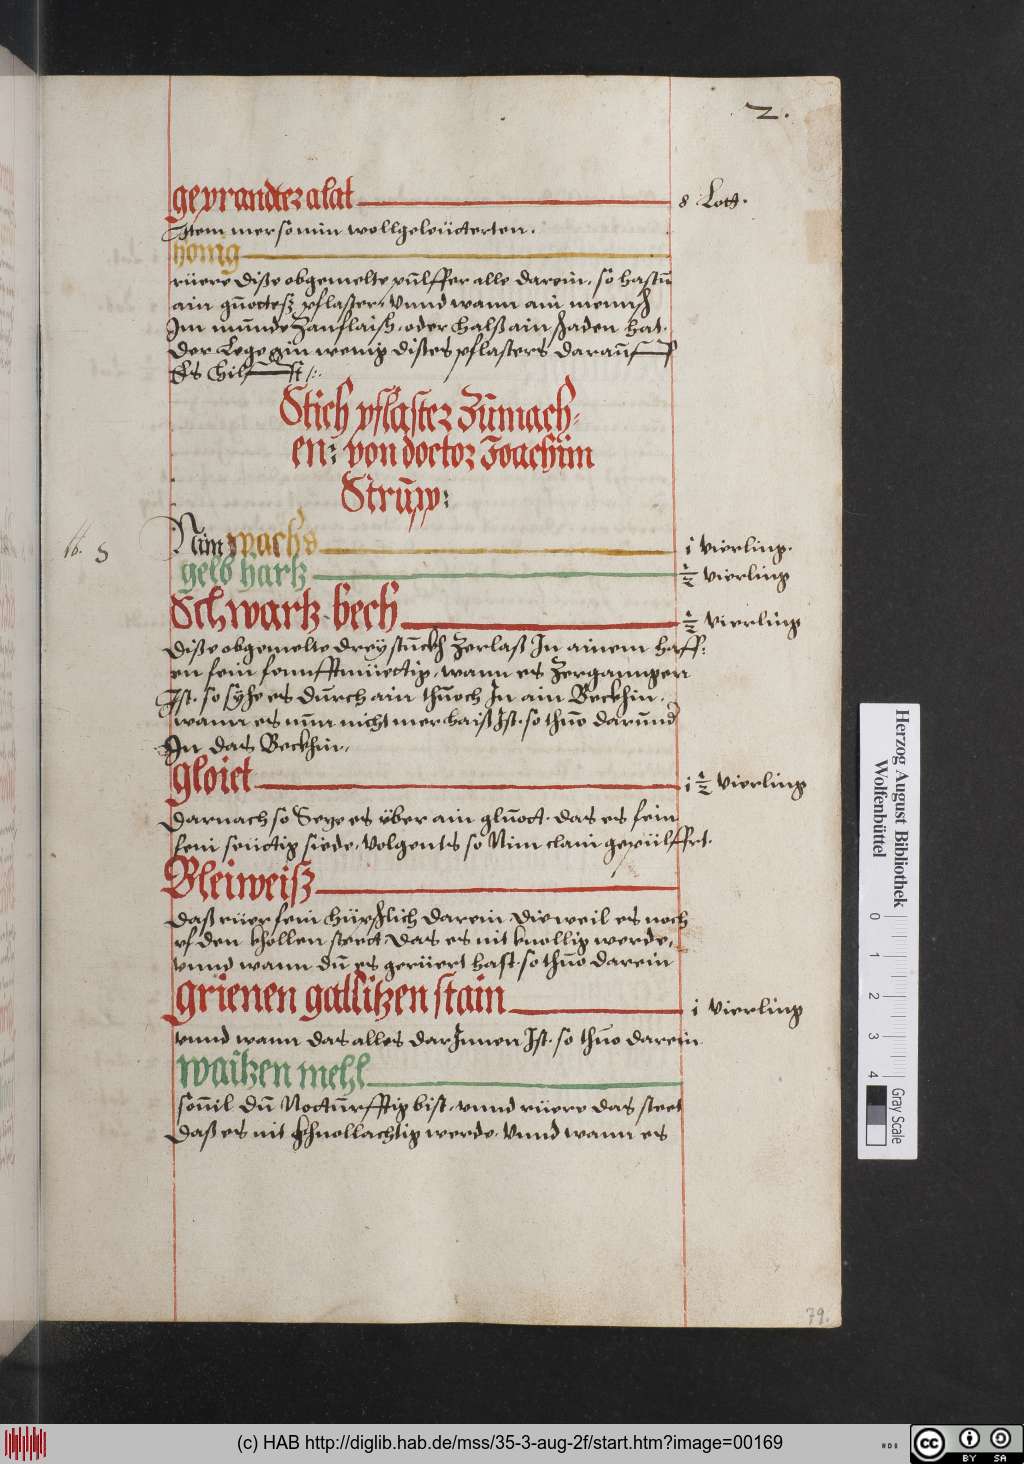 2.
geprandter alat 8 Lott.
Item mer so nim wollgeleüterten.
honig
rüere diße obgemelte pulffer alle darein, so hastu
ain guottesz pflaster, Vnnd wann ain mennsch
Im munde Zanflaisch, oder halß ain schaden hat.
Der Lege ain wenig dises pflasters darauff
Es hilfft
Stich pflaster Zumach-
en: von doctor Joachim
Strupp:
16. S
Nim wachs i vierling.
gelb hartz ½ vierling
Schwartz bech ½ vierling
Diße obgemelte drey stuckh Zerlaß In ainem haff:
en fein sennfftmüettig, wann es Zerganngen
Ist. so syhe es durch ain thuoch In ain Beckhin.
wann es nun nicht mer haiß Ist. so thuo darund
In das Beckhin,
gloiet i ½ vierling
Darnach so Setze es über ain gluott. das es fein
fein seüttig siede, Volgents so Nim clain gepülffrt.
Bleiweisz
Daß rüer fein hüpschlich darein Die weil es noch
vf den khollen steet das es nit knollig werde,
vnnd wann du es gerüert hast. so thuo darein
grienen gallitzen stain i vierling
vnnd wann das alles darInnen Ist. so thuo darein
waitzen mehl
souil du Notturfftig bist, vnnd rüere das steet
Daß es nit khnollachtig werde. Vnnd wann es
79.
Herzog August Bibliothek
Wolfenbüttel
0 1 2 3 4
Gray Scale
(c) HAB http://diglib.hab.de/mss/35-3-aug-2f/start.htm?image=00169
cc BY SA